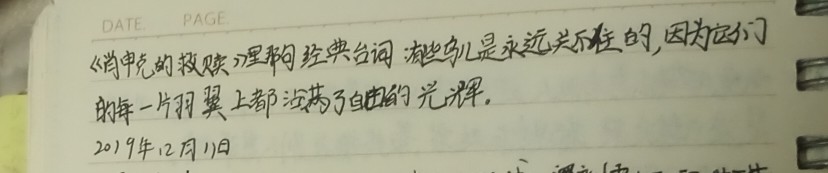 DATE PAGE
《肖申克的救赎》里那句经典台词 有些鸟儿是永远关不住的,因为它们
的每一片羽翼上都沾满了自由的光辉.
2019年12月11日